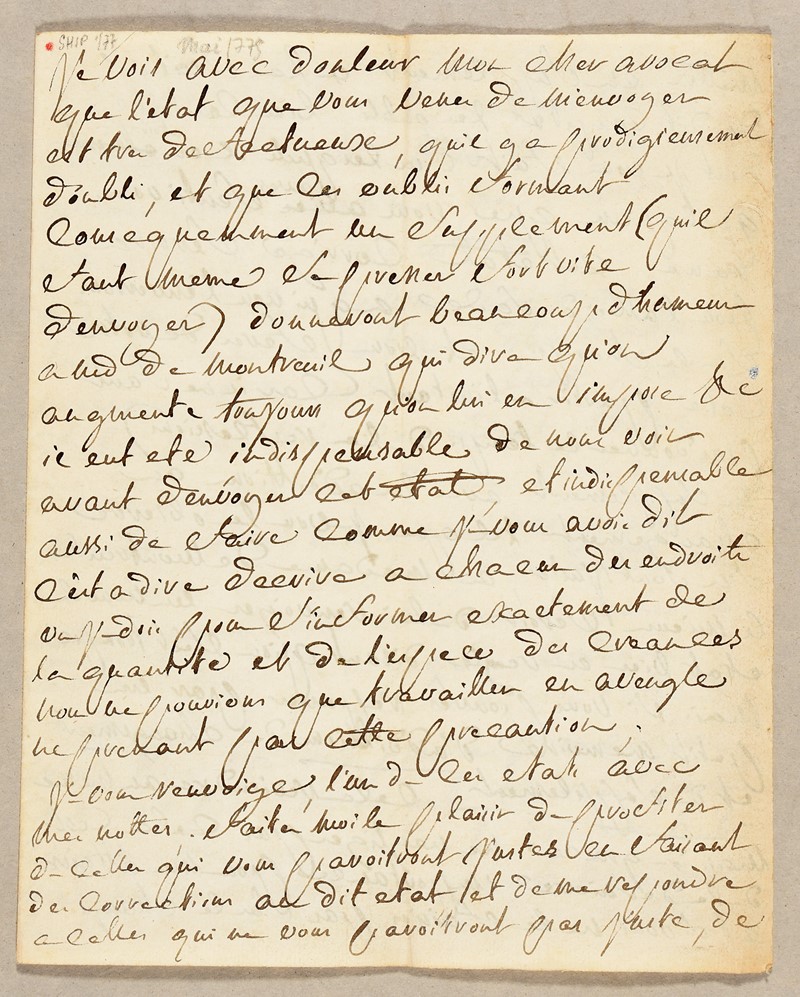 SHIP 177
Mai 1775
je vois avec douleur mon cher avocat
que l'etat que vous vener de m'envoyer
est tres defectueuse, quil y a prodigieusement
d'oubli, et que les oublis formant
consequemment un supplement (quil
faut meme se presser fort vite
d'envoyer) donneront beaucoup d'humeur
a md de montreuil qui dira qu'on
augmente toujours qu'on lui en impose &c
il eut eté indispensable de nous voir
avant d'envoyer cet etat, et indispensable
aussi de faire comme je vous avois dit
c'est a dire decrire a chacun des endroits
ou je dois pour s'informer exactement de
la quantité et de l'espece des creances
nous ne pouvions que travailler en aveugle
ne prenant pas cette precaution.
je vous renvoige, l'un de ces etats avec
mes nottes. faites moi le plaisir de profiter
de celles qui vous paroitront justes en faisant
des corrections au dit etat et de me repondre
a celles qui ne vous paroitront pas juste, de